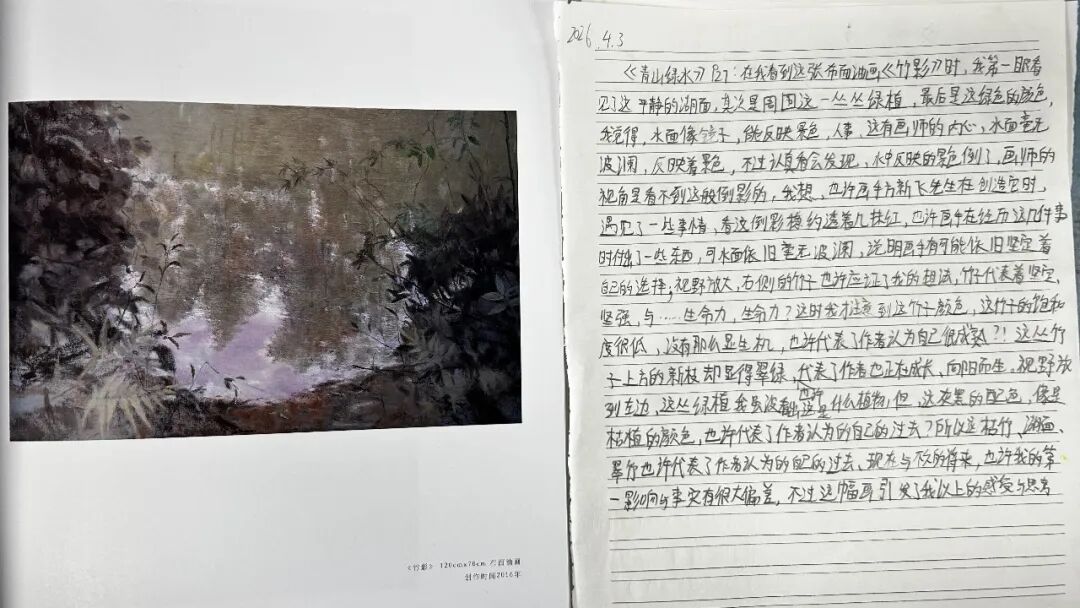 《竹影》 120cmx70cm 布面油画
创作时间2016年
2026.4.3
《青山绿水》P27:在我看到这张布面油画《竹影》时,我第一眼看
见了这平静的湖面,其次是周围这一丛丛绿植,最后是这绿色的颜色,
我觉得,水面像镜子,能反映景色,人事,还有画师的内心,水面毫无
波澜,反映着景色,不过认真看会发现,水中反映的景色倒了,画师的
视角是看不到这般倒影的,我想,也许画手方新飞先生在创造它时,
遇见了一些事情,看这倒影隐约透着几抹红,也许画手在经历这几件事
时做了一些东西,可水面依旧毫无波澜,说明画手有可能依旧坚定着
自己的选择,视野放大,右侧的竹子也许应证了我的想法,竹子代表着坚定、
坚强,与……生命力,生命力?这时我才注意到这竹子颜色,这竹子的饱和
度很低,没有那么显生机,也许代表了作者认为自己很成熟?!这丛竹
子上方的新枝却显得翠绿,也许代表了作者也正在成长,向阳而生,视野放
到左边,这丛绿植我虽没看出这是什么植物,但,这灰黑的配色,像是
枯植的颜色,也许代表了作者认为的自己的过去?所以这枯竹、湖面、
翠竹也许代表了作者认为的自己的过去、现在与不久的将来,也许我的第
一影响与事实有很大偏差,不过这幅画引发了我以上的感受与思考